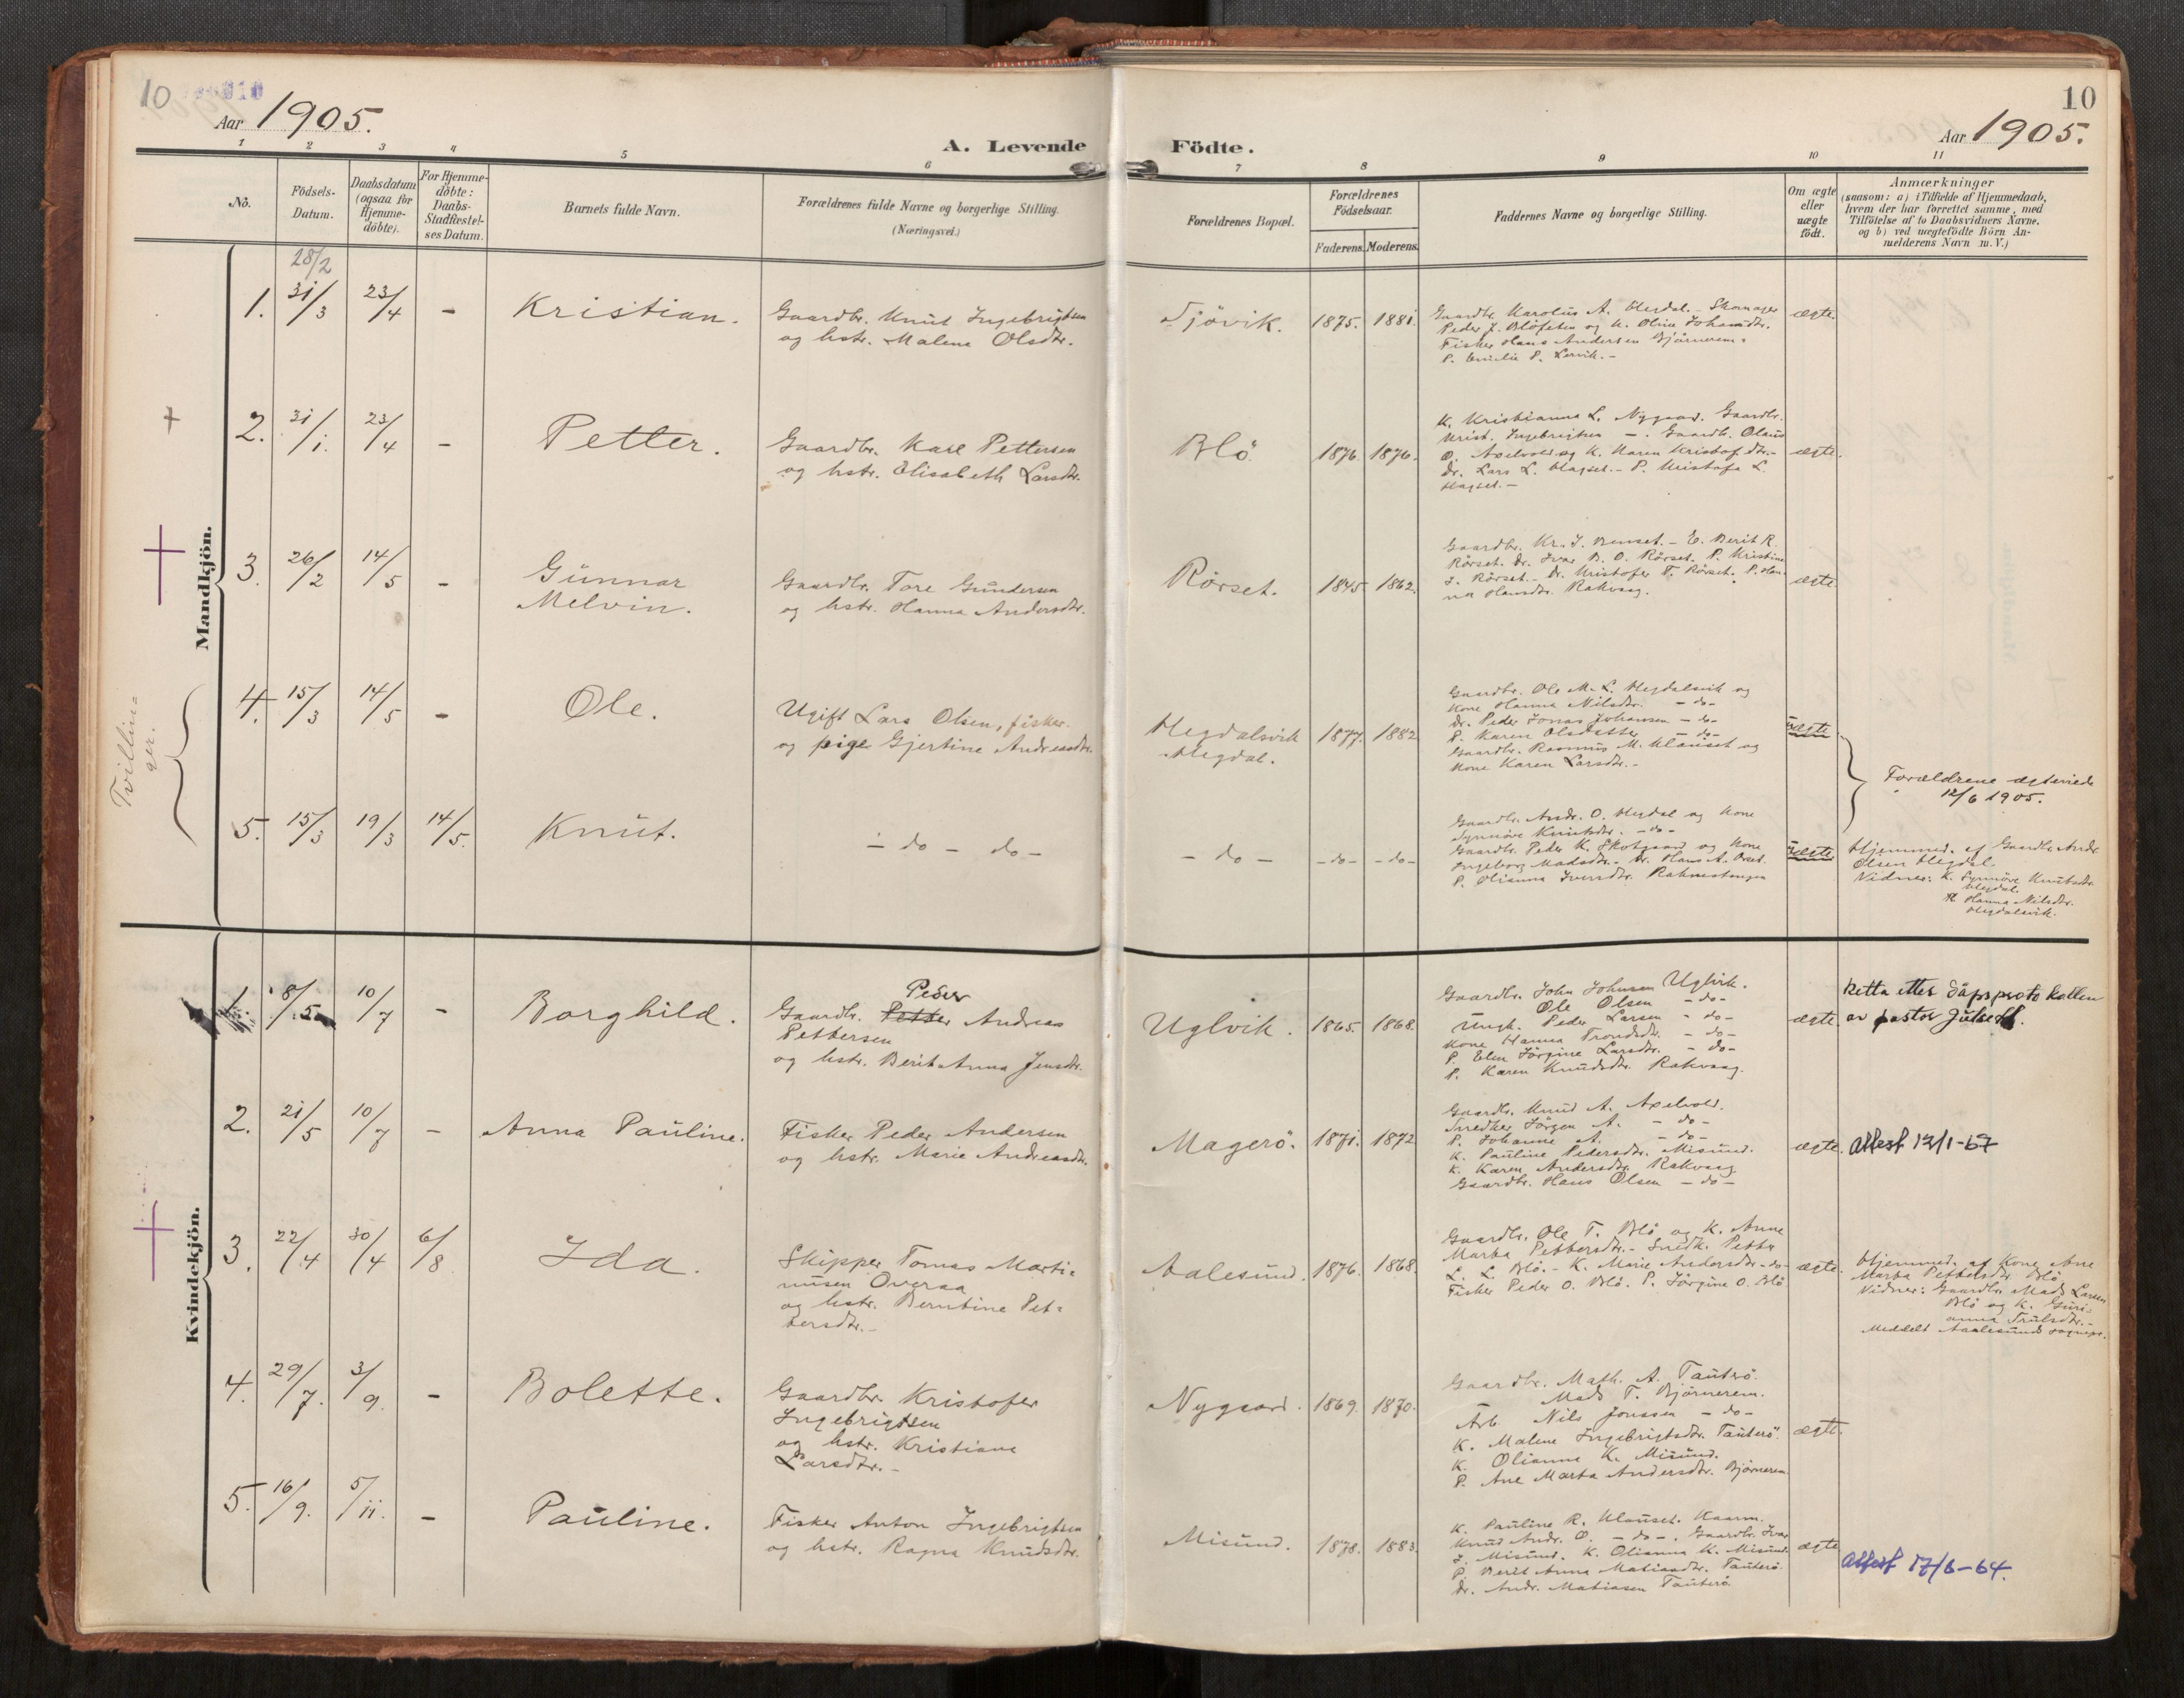 10
010
Aar 1905.
A. Levende
1 2 3 4 5 6
No.
Födsels-
Datum.
Daabsdatum
(ogsaa for
Hjemme-
döbte).
For Hjemme-
döbte:
Daabs-
Stadfæstel-
ses Datum.
Barnets fulde Navn.
Forældrenes fulde Navne og borgerlige Stilling.
(Næringsvei.)
Mandkjön.
28/2
1. 31/3 23/4 - Kristian.
Gaardbr. Knut Ingebrigtsen
og hstr. Malene Olsdtr.
2. 31/1. 23/4 - Petter.
Gaardbr. Karl Pettersen
og hstr. Elisabeth Larsdtr.
3. 26/2 14/5 - Gunnar
Melvin.
Gaardbr. Tore Gundersen
og hstr. Hanna Andersdtr.
Tvillin=
ger.
4. 15/3 14/5 - Ole.
Ugift Lars Olsen, fisker.
og pige Gjertine Andreasdtr.
5. 15/3 19/3 14/5. Knut.
- do - do -
Kvindekjön.
1. 8/5 10/7 - Borghild.
Peder
Gaardbr. Petter Andreas
Pettersen
og hstr. Berit Anna Jensdtr.
2. 21/5 10/7 - Anna Pauline.
Fisker Peder Andersen
og hstr. Marie Andreasdtr.
3. 22/4 30/4 6/8 Ida.
Skipper Tomas Marti=
nusen Overaa
og hstr. Berntine Pet=
tersdtr. -
4. 29/7. 3/9. - Bolette.
Gaardbr. Kristofer
Ingebrigtsen
og hstr. Kristiane
Larsdtr. -
5. 16/9. 5/11. - Pauline.
Fisker Anton Ingebrigtsen
og hstr. Ragna Knudsdtr.
10
Aar 1905.
Födte.
7 8 9 10 11
Forældrenes Bopæl.
Forældrenes
Födselsaar.
Faderens. Moderens.
Faddernes Navne og borgerlige Stilling.
Om ægte
eller
uægte
födt.
Anmærkninger
(saasom: a) i Tilfælde af Hjemmedaab,
hvem der har forrettet samme, med
Tilföielse af to Daabsvidners Navne,
og b) ved uægtefödte Börn An-
melderens Navn m. V.)
Sjövik. 1875. 1881.
Gaardbr. Karolus A. Hegdal. -
Peder J. Blöfeten og K. Oline Johansdtr.
Fisker Hans Andersen Björnerem.
P. Emilie P. Lervik. -
ægte.
Blö 1876. 1876.
K. Kristianna L. Nygaard. Gaardbr.
Krist. Ingebrigtsen - . Gaardbr. Olaus
O. Axelvold og K. Karen Kristofdtr. -
Dr. Lars L. Hagset. - P. Kristofa L.
Hagset. -
ægte.
Rörset. 1845. 1862.
Gaardbr. Kr. J. Benset. - E. Berit R.
Rörset. Dr. Ivar B. O. Rörset. P. Kristine
J. Rörset. - Dr. Kristofer T. Rörset. P. Han=
na Hansdtr. Rakvaag.
ægte.
Hegdalsvik
Hegdal.
1877. 1882
Gaardbr. Ole M. L. Hegdalsvik og
Kone Hanna Nilsdtr. - do -
Dr. Peder Jonas Johansen - do -
P. Karen Olsdatter - do -
Gaardbr. Rasmus M. Klauset og
Kone Karen Larsdtr. -
uægte
Forældrene ægteviede
12/6 1905.
- do - - do - - do -
Gaardbr. Andr. O. Hegdal og Kone
Synnöve Knutsdtr. - do -
Gaardbr. Peder K. Skotgaard og Kone
Ingeborg Madsdtr. - Dr. Hans A. Orset.
P. Olianna Iversdtr. Rakvestangen
uægte
Hjemmed. af Gaardbr. Andr.
Olsen Hegdal.
Vidner: K. Synnöve Knutsdtr.
Hegdal.
K. Hanna Nilsdtr.
Hegdalsvik.
Uglvik. 1865. 1868.
Gaardbr. John Johnsen Uglvik.
Ole Olsen - do -
Ungk. Peder Larsen - do -
Kone Hanna Trondsdtr. - do -
P. Elen Jörgine Larsdtr. - do -
P. Karen Knudsdtr. Rakvaag.
ægte.
Retta etter dåpsprotokollen
av pastor Julseth.
Magerö. 1871. 1872
Gaardbr. Knud A. Axelvold.
Snedker Jörgen A. - do -
P. Johanne A. - do -
K. Pauline Pedersdtr. Misund.
K. Karen Andersdtr. Rakvaag
Gaardbr. Hans Olsen - do -
ægte.
Attest 17/1-67
Aalesund. 1876. 1868.
Gaardbr. Ole T. Blö og K. Anne
Marta Pettersdtr. - Snedk. Petter
L. L. Blö. - K. Marie Andersdtr - do -
Fisker Peder O. Blö. P. Jörgine O. Blö
ægte.
Hjemmed. af Kone Ane
Marta Pettersdtr. Blö
Vidner: Gaardbr. Mads Larsen
Blö og K. Guri=
anna Trulsdtr. -
Meddelt Aalesunds sognepr.
Nygaard. 1869. 1870.
Gaardbr. Math. A. Tauterö.
Mads T. Björnerem.
Arb. Nils Jonssen - do -
K. Malene Ingebrigtsdtr. Tauterö.
K. Olianna K. Misund.
P. Ane Marta Andersdtr. Björnerem.
ægte.
Misund. 1878. 1883.
K. Pauline R. Klauset. Kaarm.
Knud Andr. O. - do - . Gaardbr. Ivar
J. Misund. K. Olianna K. Misund
P. Berit Anna Matiasdtr. Tauterö.
Dr. Andr. Matiasen Tauterö
ægte
Attest 17/6-64.